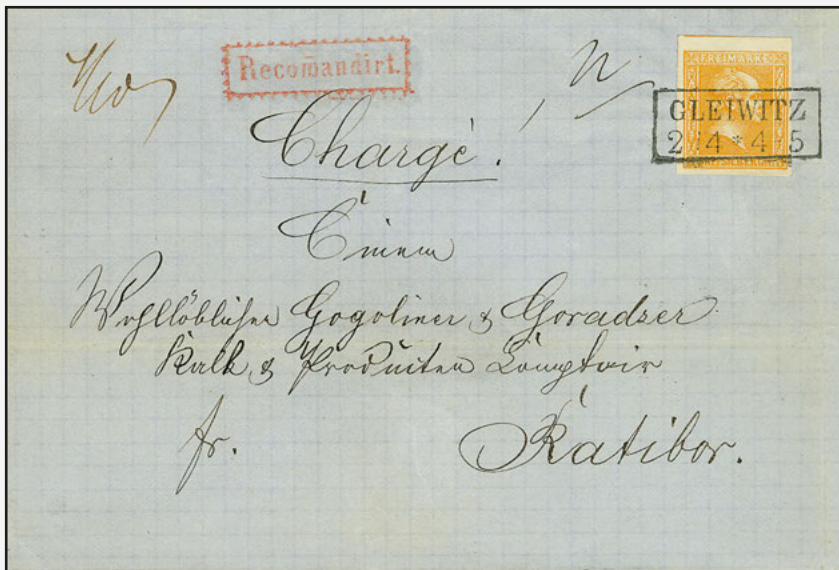 Recom̄andirt.
FREIMARKE
GLEIWITZ
2 4 * 4 5
Chargé!
Einem
Wohllöblichen Gogoliner & Goradzer
Kalk & Producten Comptoir
fr. Ratibor.